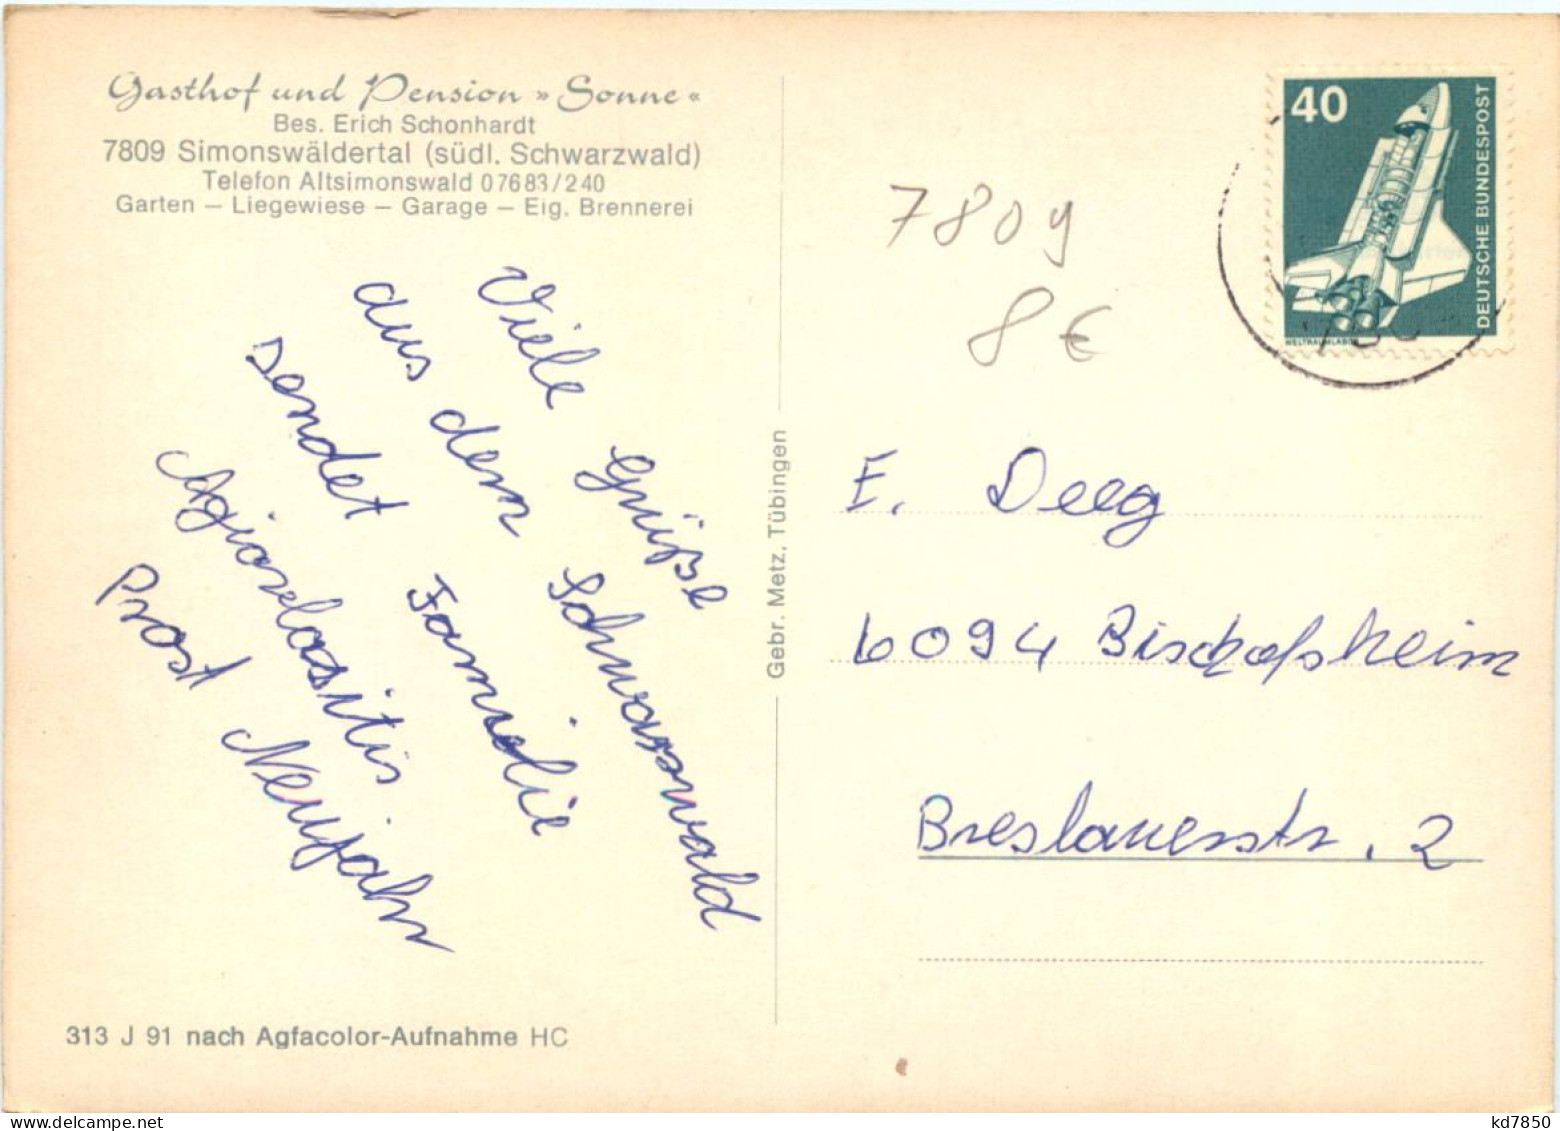 Gasthof und Pension » Sonne «
Bes. Erich Schonhardt
7809 Simonswäldertal (südl. Schwarzwald)
Telefon Altsimonswald 07683/240
Garten – Liegewiese – Garage – Eig. Brennerei
Viele Grüße
aus dem Schwarzwald
sendet Familie
Agiovlasitis
Prost Neujahr
313 J 91 nach Agfacolor-Aufnahme HC
Gebr. Metz, Tübingen
7809
8 €
40
DEUTSCHE BUNDESPOST
WELTRAUMLABOR
E. Deeg
6094 Bischofsheim
Breslauerstr. 2
kd7850